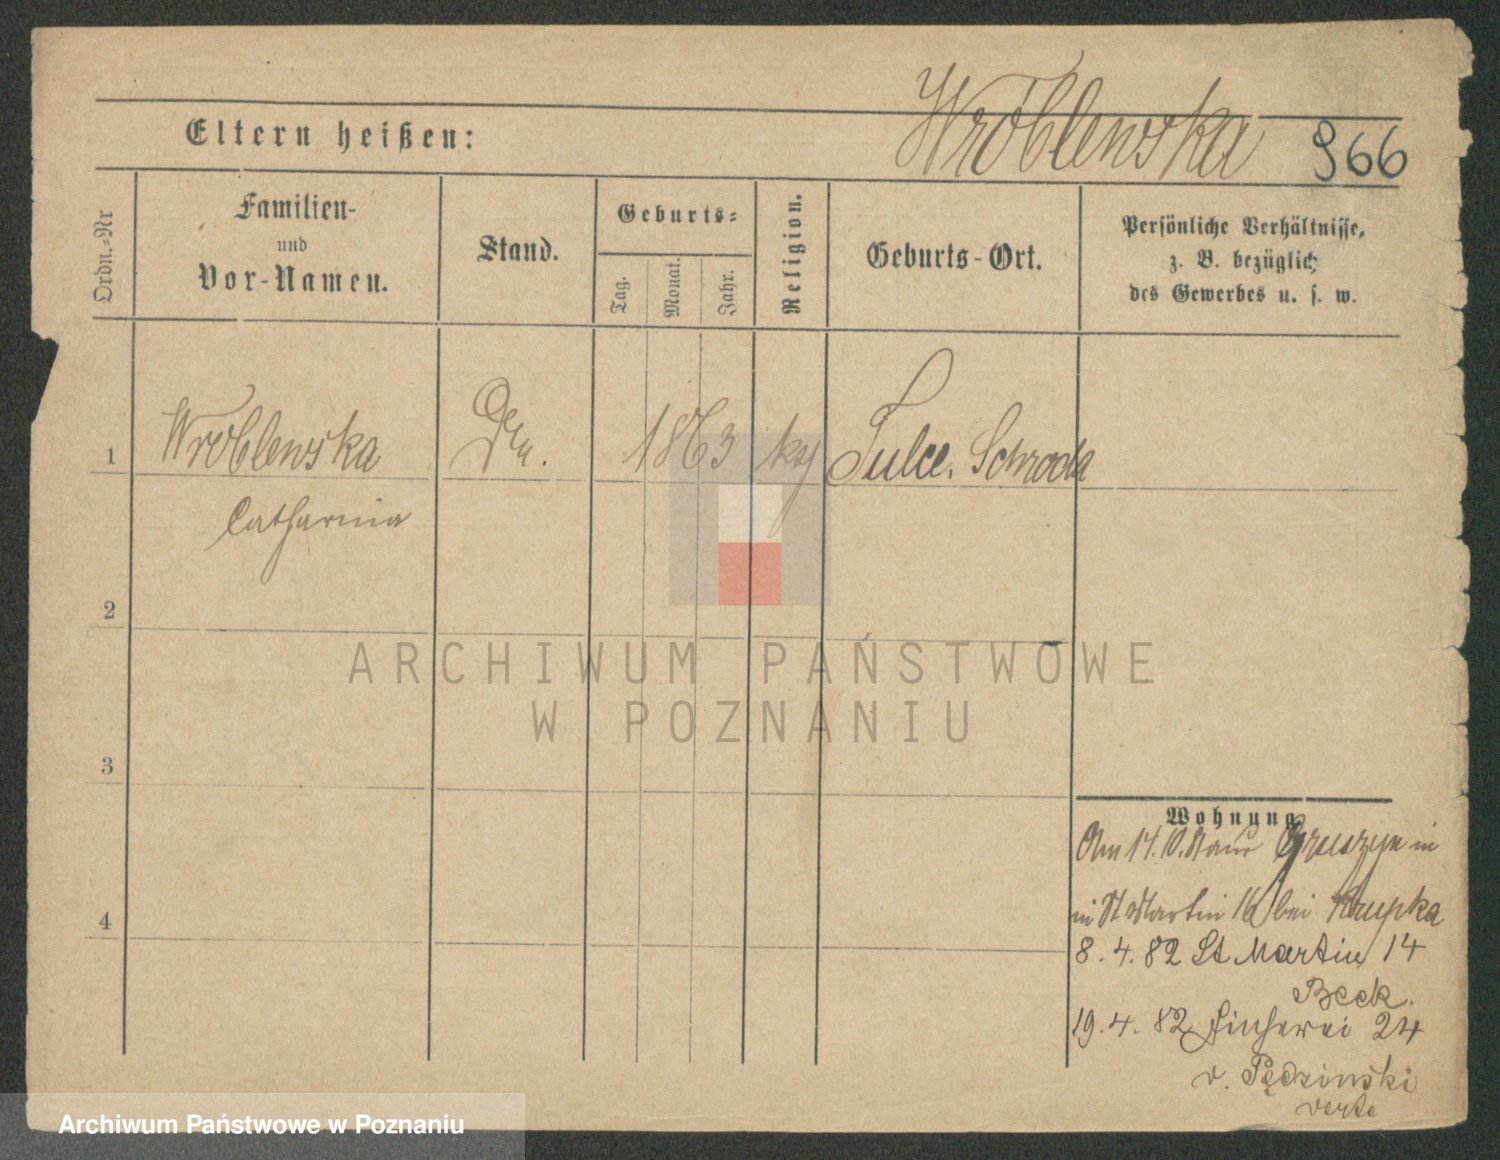 Wróblewska 966
Eltern heißen:
Ordn.=Nr
Familien-
und
Vor-Namen.
Stand.
Geburts=
Tag.
Monat.
Jahr.
Religion.
Geburts-Ort.
Persönliche Verhältnisse,
z. B. bezüglich
des Gewerbes u. s. w.
1 Wroblewska 1863 Tulce. Schroda
Catharina
2
3
4
Wohnung
Am 14.10. in
in St Martin 16 bei Krupka
8.4.82 St Martin 14
Beck.
19.4.82 Fischerei 24
v. Pędzinski
verte
ARCHIWUM PAŃSTWOWE
W POZNANIU
Archiwum Państwowe w Poznaniu